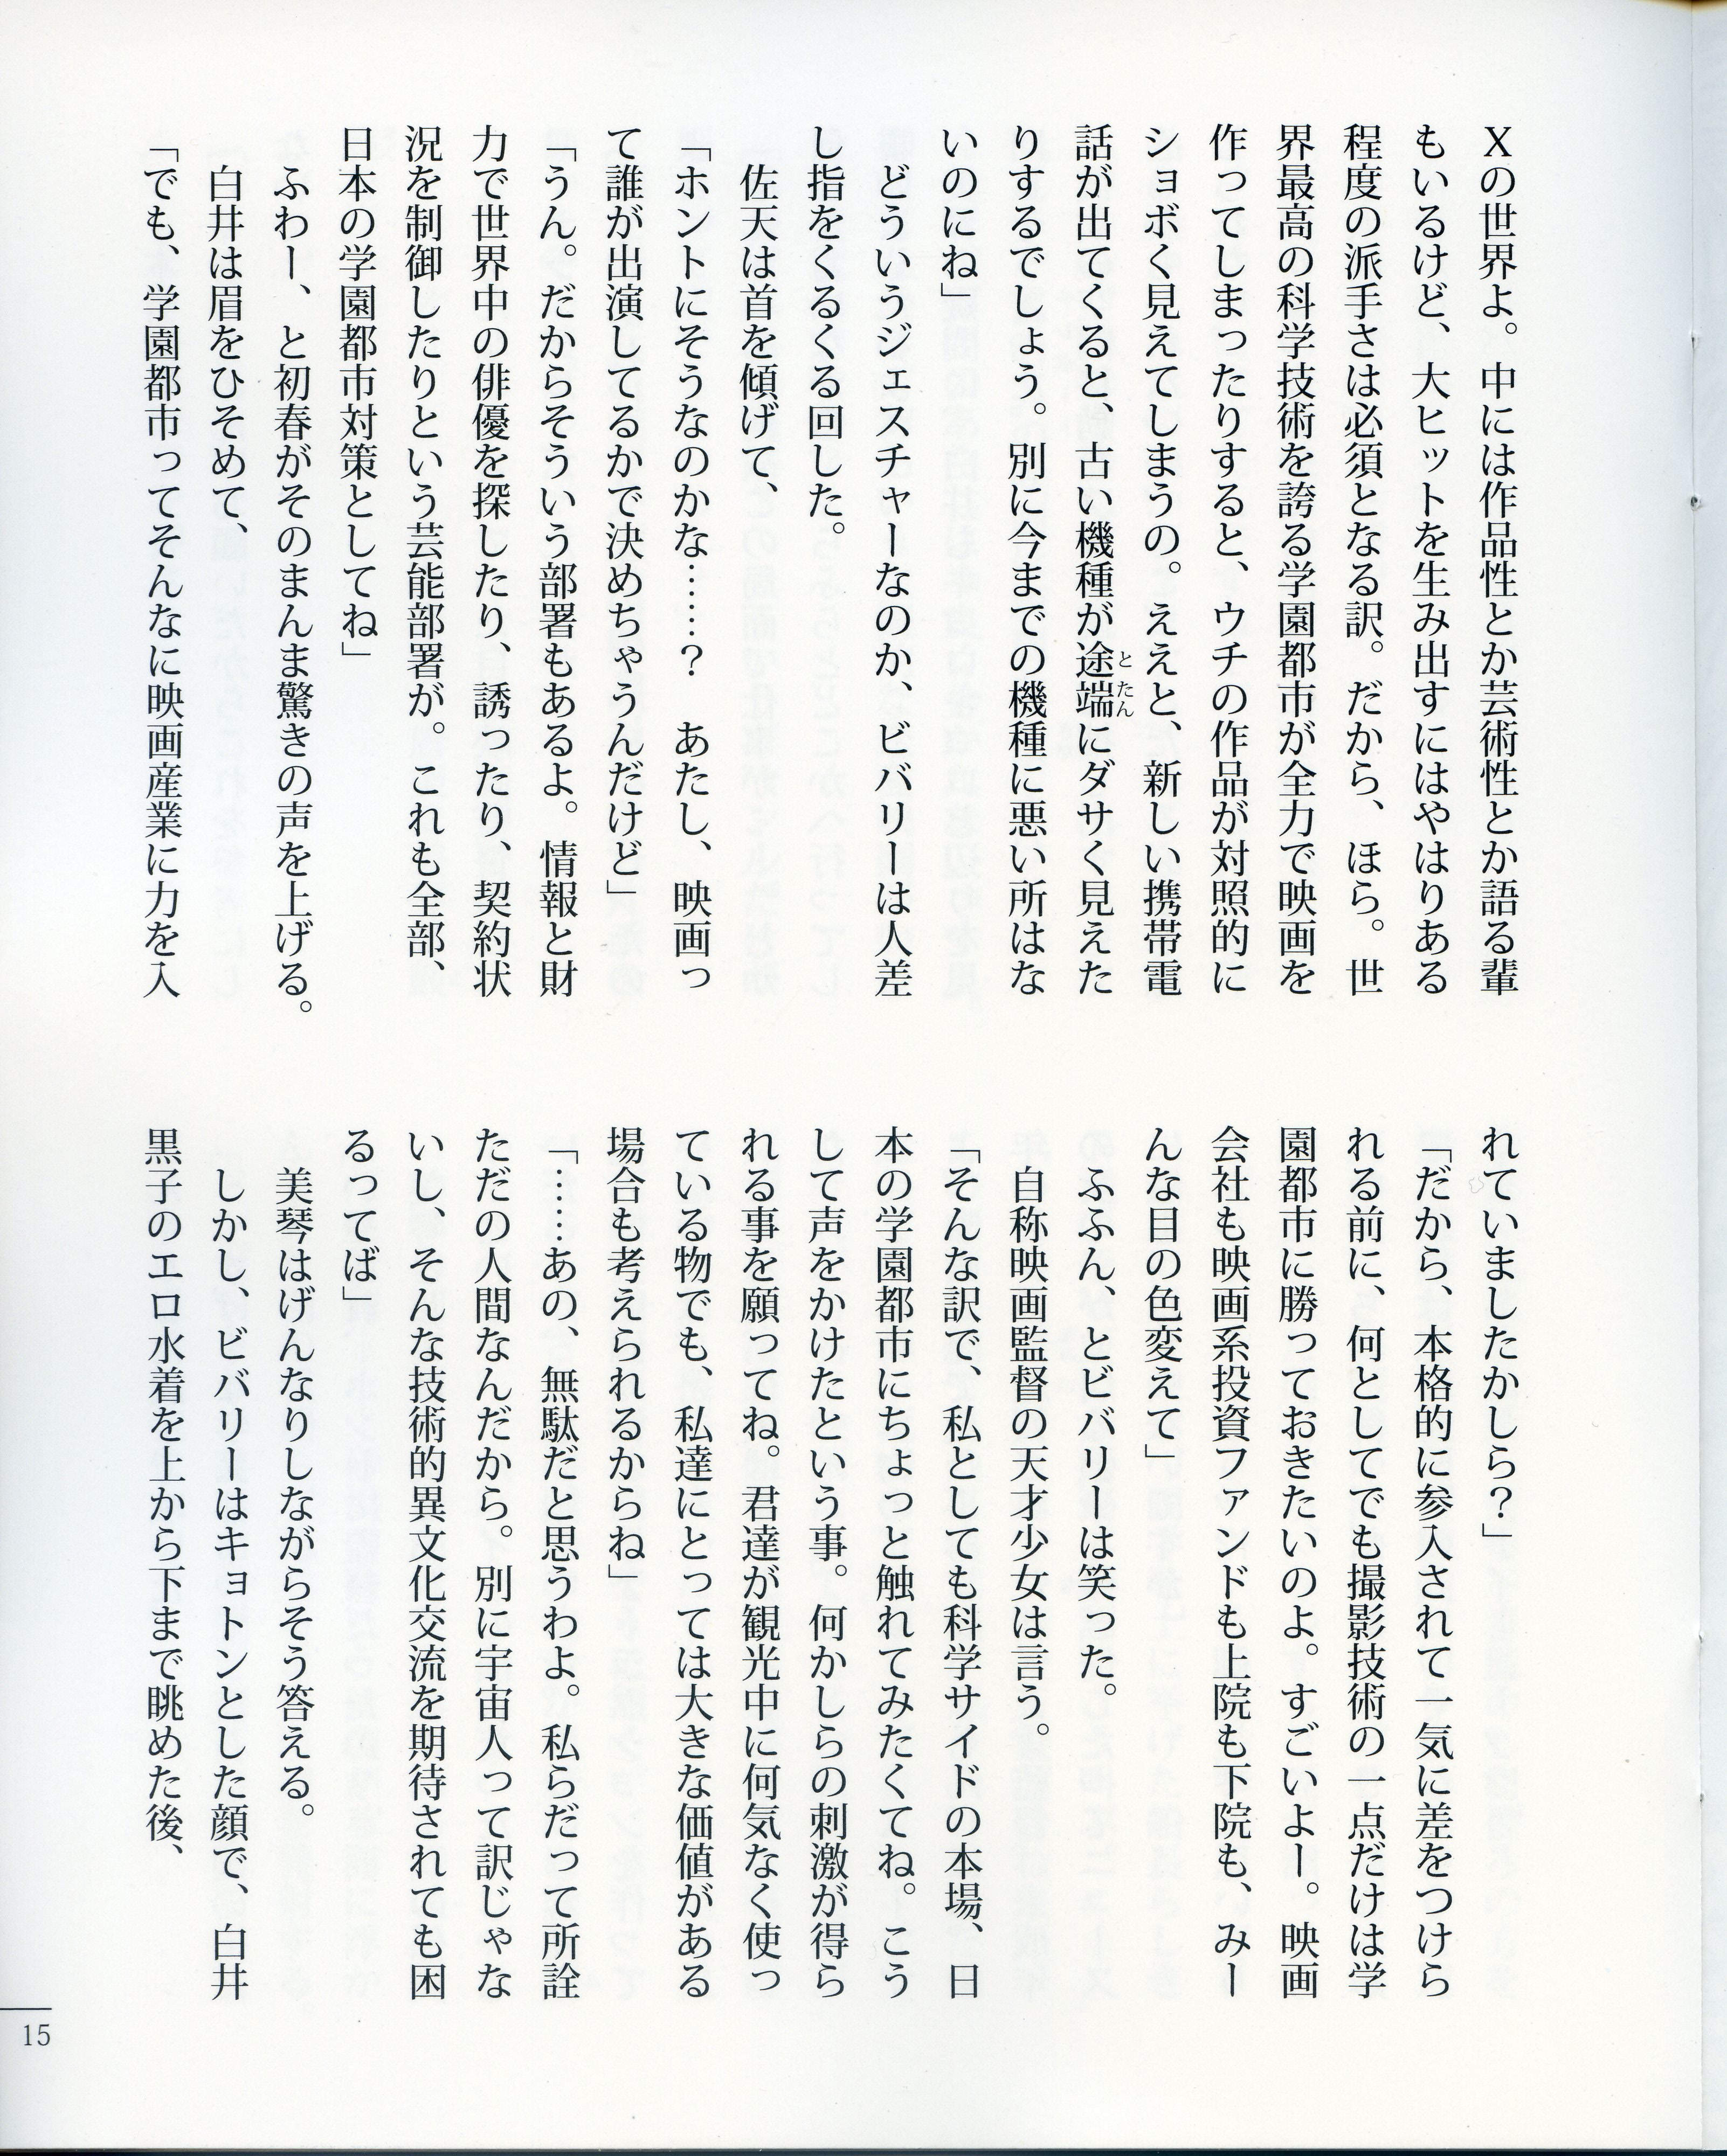 Xの世界よ。中には作品性とか芸術性とか語る輩
もいるけど、大ヒットを生み出すにはやはりある
程度の派手さは必須となる訳。だから、ほら。世
界最高の科学技術を誇る学園都市が全力で映画を
作ってしまったりすると、ウチの作品が対照的に
ショボく見えてしまうの。ええと、新しい携帯電
話が出てくると、古い機種が途端にダサく見えた
とたん
りするでしょう。別に今までの機種に悪い所はな
いのにね」
どういうジェスチャーなのか、ビバリーは人差
し指をくるくる回した。
佐天は首を傾げて、
「ホントにそうなのかな……？　あたし、映画っ
て誰が出演してるかで決めちゃうんだけど」
「うん。だからそういう部署もあるよ。情報と財
力で世界中の俳優を探したり、誘ったり、契約状
況を制御したりという芸能部署が。これも全部、
日本の学園都市対策としてね」
ふわー、と初春がそのまんま驚きの声を上げる。
白井は眉をひそめて、
「でも、学園都市ってそんなに映画産業に力を入
れていましたかしら？」
「だから、本格的に参入されて一気に差をつけら
れる前に、何としてでも撮影技術の一点だけは学
園都市に勝っておきたいのよ。すごいよー。映画
会社も映画系投資ファンドも上院も下院も、みー
んな目の色変えて」
ふふん、とビバリーは笑った。
自称映画監督の天才少女は言う。
「そんな訳で、私としても科学サイドの本場、日
本の学園都市にちょっと触れてみたくてね。こう
して声をかけたという事。何かしらの刺激が得ら
れる事を願ってね。君達が観光中に何気なく使っ
ている物でも、私達にとっては大きな価値がある
場合も考えられるからね」
「……あの、無駄だと思うわよ。私らだって所詮
ただの人間なんだから。別に宇宙人って訳じゃな
いし、そんな技術的異文化交流を期待されても困
るってば」
美琴はげんなりしながらそう答える。
しかし、ビバリーはキョトンとした顔で、白井
黒子のエロ水着を上から下まで眺めた後、
15